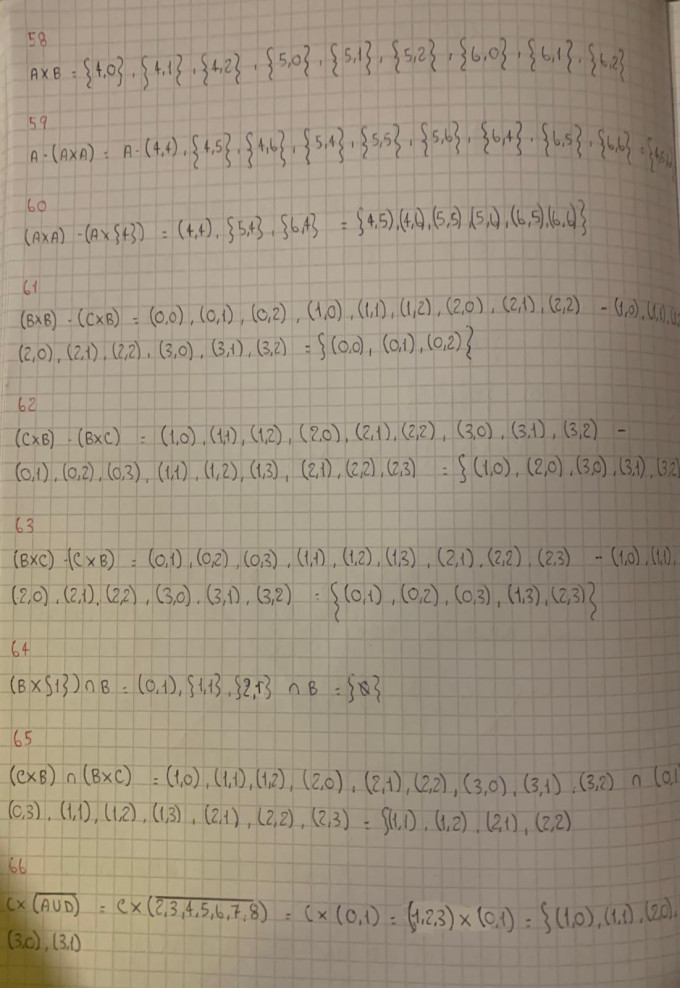 58
A×B = {4,0}, {4,1}, {4,2}, {5,0}, {5,1}, {5,2}, {6,0}, {6,1}, {6,2}
59
A-(A×A) = A-(4,4), {4,5}, {4,6}, {5,4}, {5,5}, {5,6}, {6,4}, {6,5}, {6,6} = {4,5,
60
(A×A) -(A×{4}) = (4,4), {5,4}, {6,4} = {4,5),(4,6),(5,5),(5,6),(6,5),(6,6)}
61
(B×B) - (C×B) = (0,0), (0,1), (0,2), (1,0), (1,1), (1,2), (2,0), (2,1), (2,2) - (1,0), (1,1),
(2,0), (2,1), (2,2), (3,0), (3,1), (3,2) = {(0,0), (0,1), (0,2)}
62
(C×B) - (B×C) = (1,0), (1,1), (1,2), (2,0), (2,1), (2,2), (3,0), (3,1), (3,2) -
(0,1), (0,2), (0,3), (1,1), (1,2), (1,3), (2,1), (2,2), (2,3) = {(1,0), (2,0), (3,0), (3,1), (3,2
63
(B×C) -(C×B) = (0,1), (0,2), (0,3), (1,1), (1,2), (1,3), (2,1), (2,2), (2,3) - (1,0), (1,1),
(2,0), (2,1), (2,2), (3,0), (3,1), (3,2) = {(0,1), (0,2), (0,3), (1,3), (2,3)}
64
(B×{1})∩B = (0,1), {1,1}, {2,1} ∩ B = {∅}
65
(C×B) ∩ (B×C) = (1,0), (1,1), (1,2), (2,0), (2,1), (2,2), (3,0), (3,1), (3,2) ∩ (0,1
(0,3), (1,1), (1,2), (1,3), (2,1), (2,2), (2,3) = {(1,1), (1,2), (2,1), (2,2)
66
C×(A̅U̅D̅) = C×(2̅,̅3̅,̅4̅,̅5̅,̅6̅,̅7̅,̅8̅) = C×(0,1) = (1,2,3)×(0,1) = {(1,0), (1,1), (2,0),
(3,0), (3,1)